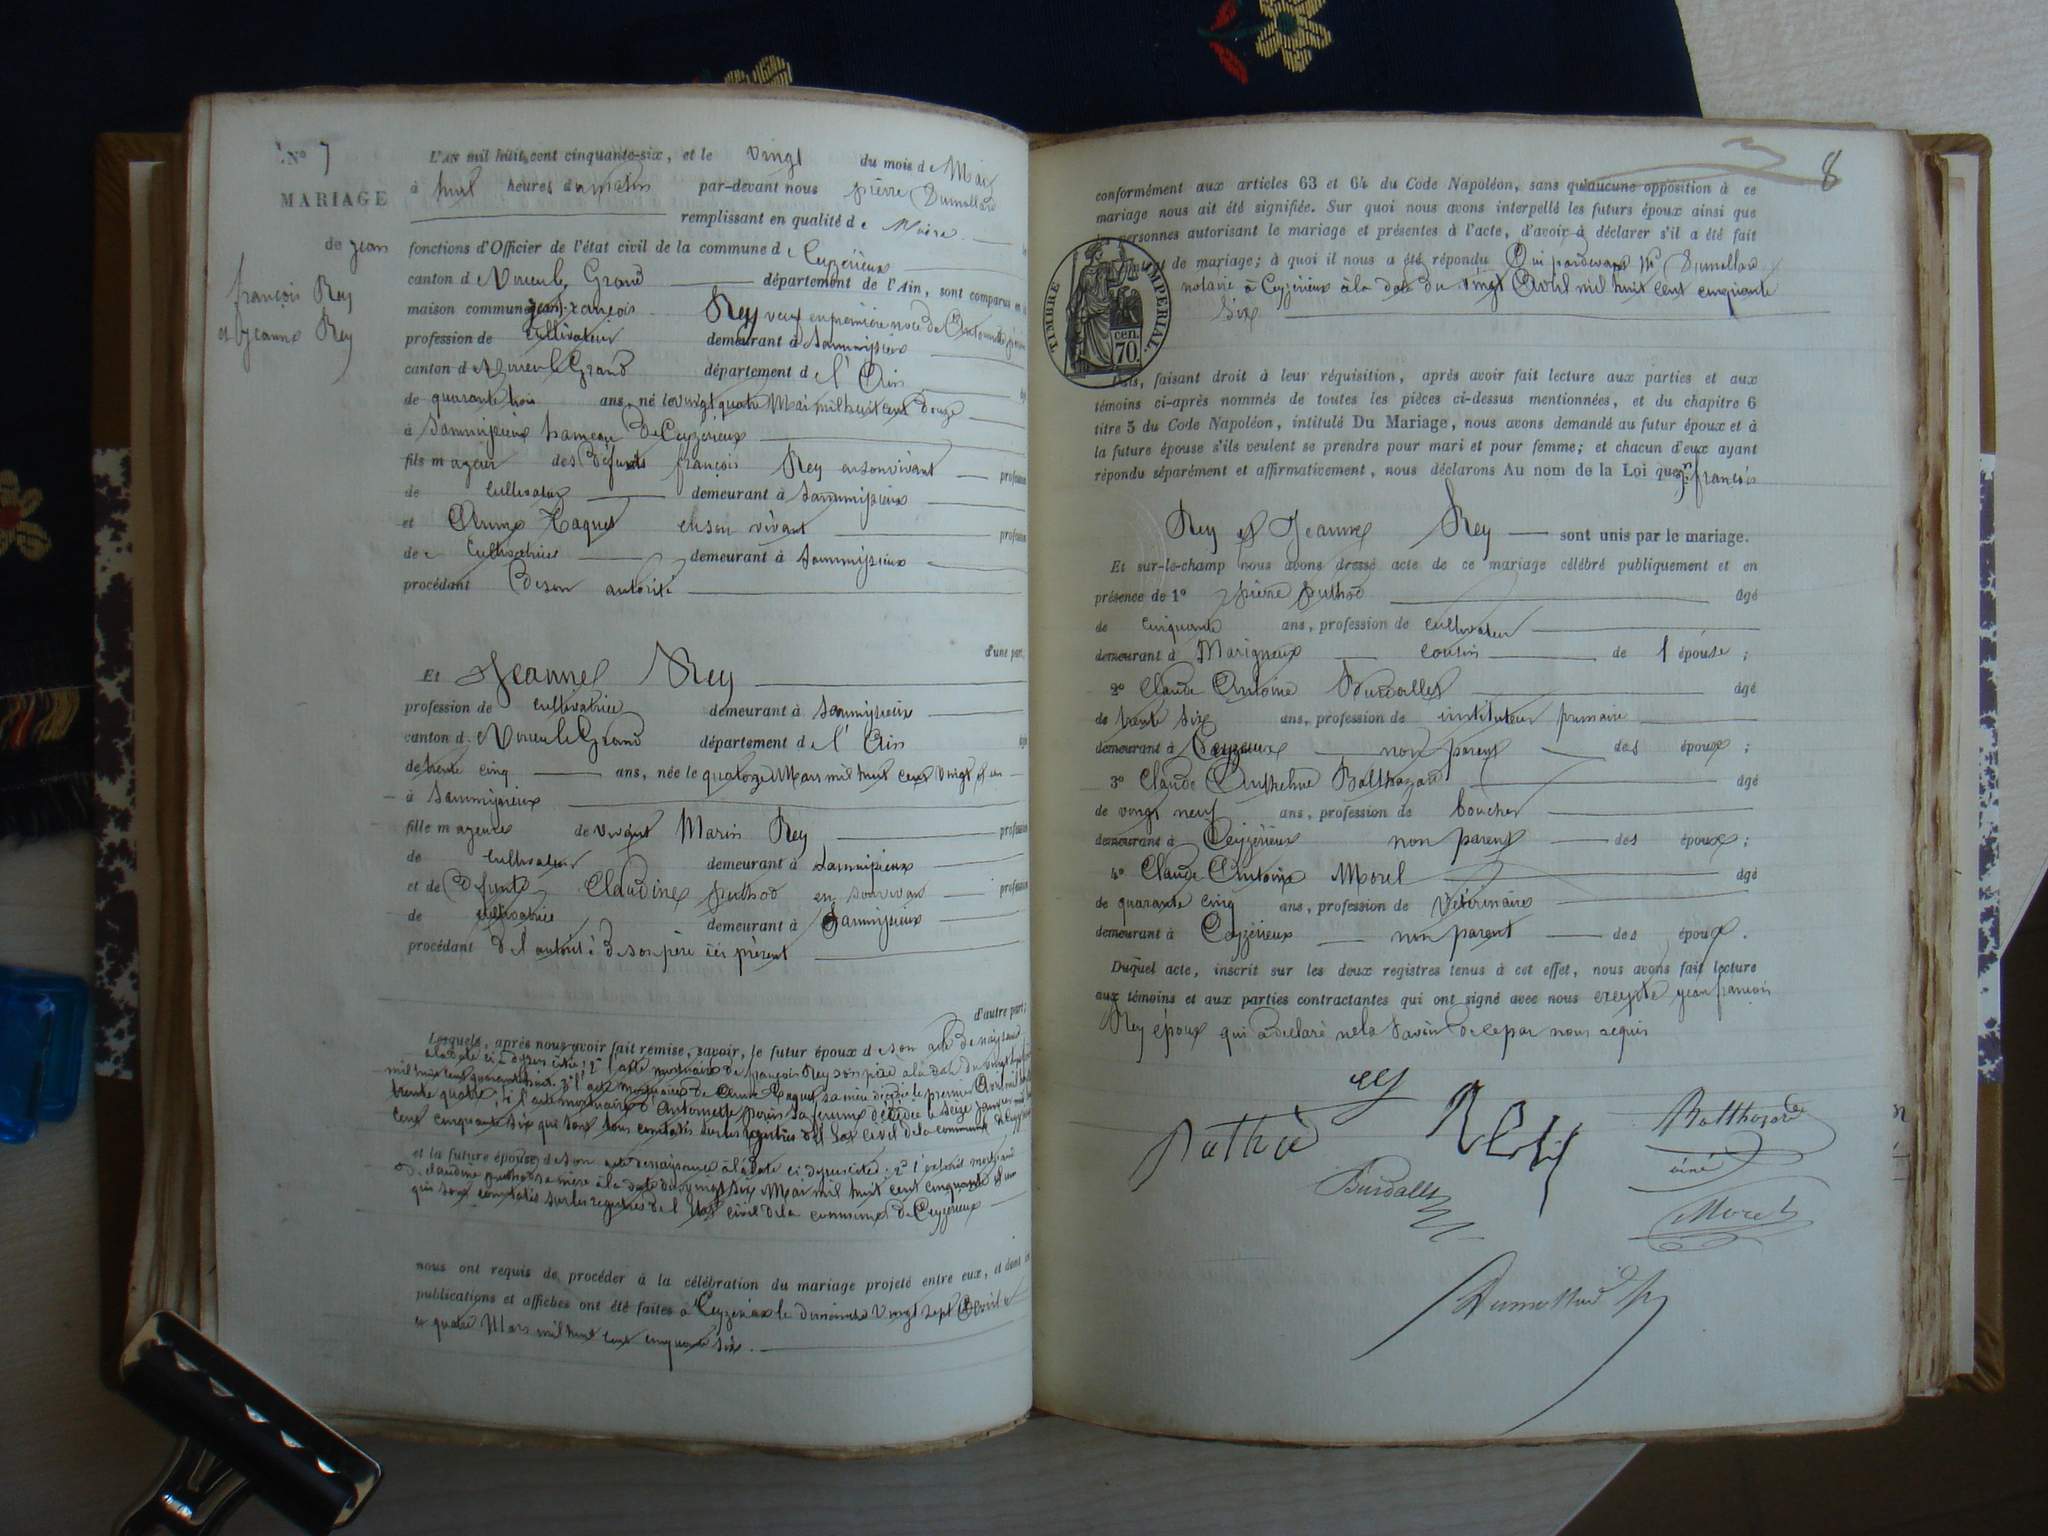 N° 7
MARIAGE
de jean
françois Rey
et Jeanne Rey
L'an mil huit cent cinquante-six, et le vingt du mois de Mai
à huit heures du matin par-devant nous pierre Dumollard
remplissant en qualité de Maire
fonctions d'Officier de l'état civil de la commune de Ceyzérieux
canton de Virieu le Grand département de l'Ain, sont comparus en la
maison commune jean françois Rey veuf en première noce de Antoinette
profession de cultivateur demeurant à Sammizieux
canton de Virieu le Grand département de l'Ain
de quarante trois ans, né le vingt quatre Mai mil huit cent douze
à Sammizieux hameau de Ceyzérieux
fils majeur des défunts françois Rey en son vivant profession
de cultivateur demeurant à Sammizieux
et Anne en son vivant profession
de cultivatrice demeurant à Sammizieux
procédant de son autorité
d'une part;
Et Jeanne Rey
profession de cultivatrice demeurant à Sammizieux
canton de Virieu le Grand département de l'Ain
de trente cinq ans, née le quatorze Mars mil huit cent vingt et un
à Sammizieux
fille majeure de vivant Marin Rey profession
de cultivateur demeurant à Sammizieux
et de défunte Claudine puthod en son vivant profession
de cultivatrice demeurant à Sammizieux
procédant de l'autorité de son père ici présent
d'autre part;
Lesquels, après nous avoir fait remise, savoir, le futur époux de son acte de naissance
à la date ci dessus citée; 2° l'acte mortuaire de françois Rey son père à la date du vingt
mil huit cent quarante 3° l'acte mortuaire de Anne sa mère décédée le premier Avril mil huit
trente quatre, 4° l'acte mortuaire d'Antoinette sa femme décédée le seize janvier mil huit
cent cinquante six qui sont tous constatés sur les registres de l'état civil de la commune de
et la future épouse, de son acte de naissance à la date ci dessus citée; 2° l'extrait mortuaire
de claudine puthod sa mère à la date du vingt six Mai mil huit cent cinquante et un
qui sont constatés sur les registres de l'état civil de la commune de Ceyzérieux
nous ont requis de procéder à la célébration du mariage projeté entre eux, et dont les
publications et affiches ont été faites à Ceyzérieux le dimanche vingt sept Avril
et quatre Mars mil huit cent cinquante six.
8
conformément aux articles 63 et 64 du Code Napoléon, sans qu'aucune opposition à ce
mariage nous ait été signifiée. Sur quoi nous avons interpellé les futurs époux ainsi que
les personnes autorisant le mariage et présentes à l'acte, d'avoir à déclarer s'il a été fait
de mariage; à quoi il nous a été répondu Oui pardevant Me Dumollard
notaire à Ceyzérieux à la date du vingt Avril mil huit cent cinquante
six
TIMBRE IMPERIAL.
70. cen.
Puis, faisant droit à leur réquisition, après avoir fait lecture aux parties et aux
témoins ci-après nommés de toutes les pièces ci-dessus mentionnées, et du chapitre 6
titre 5 du Code Napoléon, intitulé Du Mariage, nous avons demandé au futur époux et à
la future épouse s'ils veulent se prendre pour mari et pour femme; et chacun d'eux ayant
répondu séparément et affirmativement, nous déclarons Au nom de la Loi que jn françois
Rey et Jeanne Rey sont unis par le mariage.
Et sur-le-champ nous avons dressé acte de ce mariage célébré publiquement et en
présence de 1° pierre puthod âgé
de cinquante ans, profession de cultivateur
demeurant à Marignieux cousin de l épouse;
2° Claude Antoine Burdallet âgé
de trente six ans, profession de instituteur primaire
demeurant à Ceyzérieux non parent des époux;
3° Claude Anthelme Balthazard âgé
de vingt neuf ans, profession de boucher
demeurant à Ceyzérieux non parent des époux;
4° Claude Antoine Morel âgé
de quarante cinq ans, profession de Vétérinaire
demeurant à Ceyzérieux non parent des époux.
Duquel acte, inscrit sur les deux registres tenus à cet effet, nous avons fait lecture
aux témoins et aux parties contractantes qui ont signé avec nous excepté jean françois
Rey époux qui a déclaré ne la savoir de ce par nous requis
Puthod
Rey
Balthazard
ainé
Burdallet
Morel
Dumollard